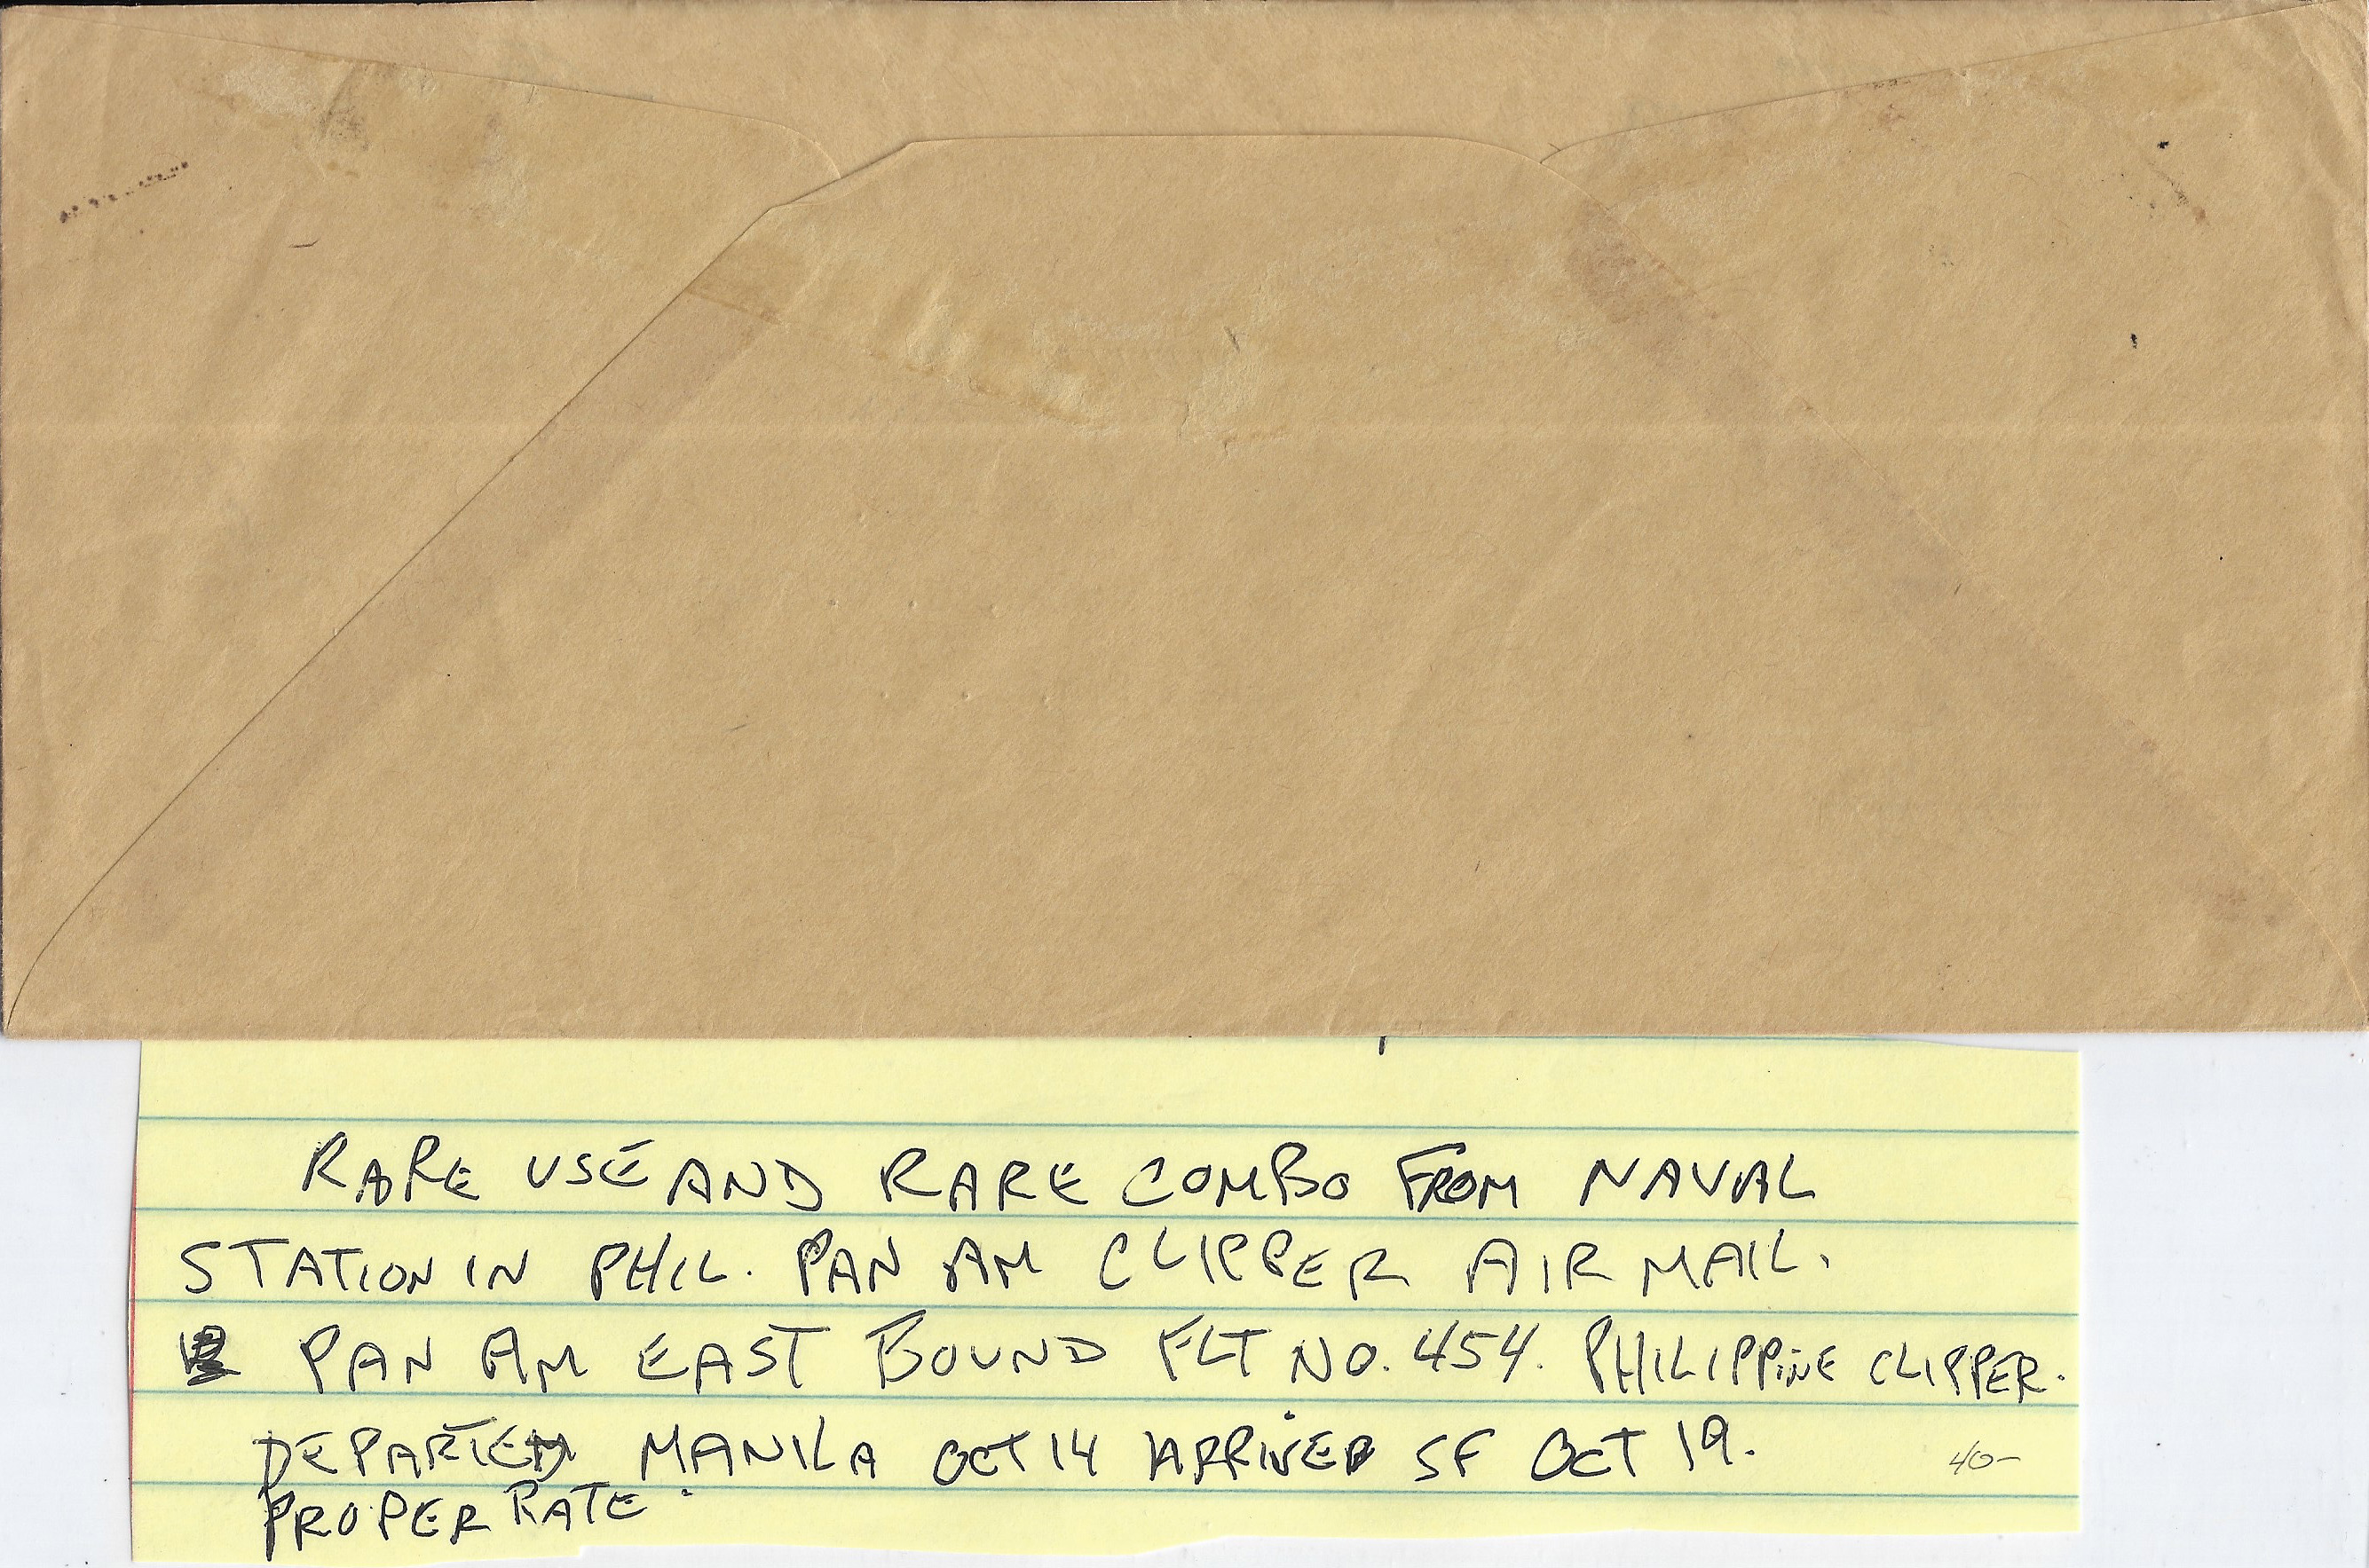 RARE USE AND RARE COMBO FROM NAVAL
STATION IN PHIL. PAN AM CLIPPER AIR MAIL.
PAN AM EAST BOUND FLT NO. 454. PHILIPPINE CLIPPER.
DEPARTED MANILA OCT 14 ARRIVED SF OCT 19.
40-
PROPER RATE.